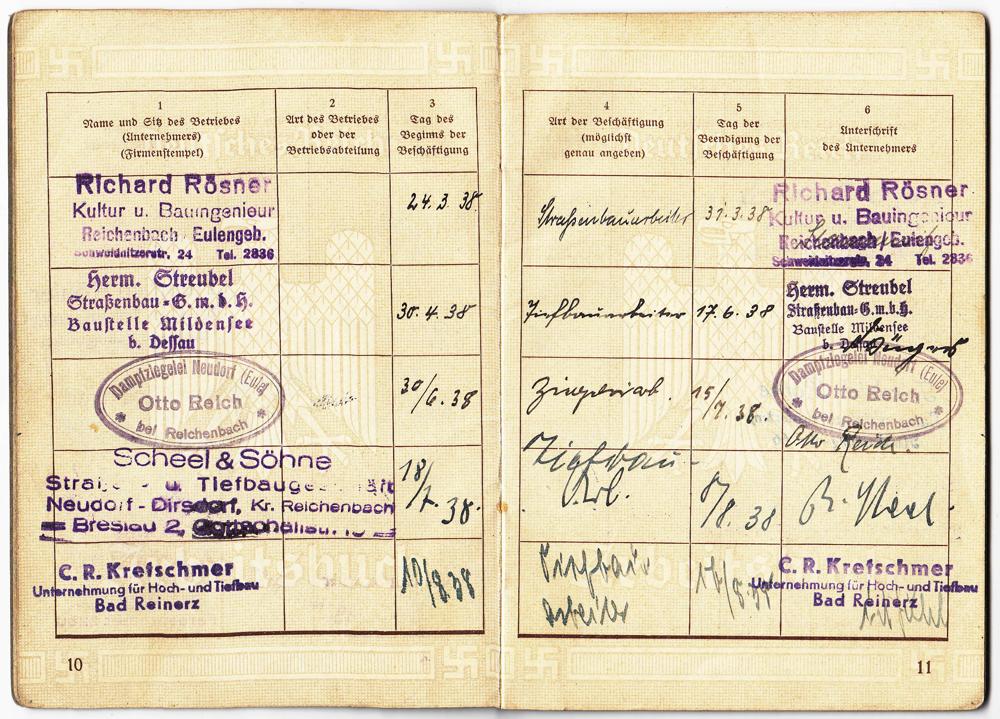 1
Name und Sitz des Betriebes
(Unternehmers)
(Firmenstempel)
2
Art des Betriebes
oder der
Betriebsabteilung
3
Tag des
Beginns der
Beschäftigung
Richard Rösner
Kultur u. Bauingenieur
Reichenbach Eulengeb.
Schweidnitzerstr. 24 Tel. 2836
24.3.38
Herm. Streubel
Straßenbau-G.m.b.H.
Baustelle Mildensee
b. Dessau
30.4.38
Dampfziegelei Neudorf (Eule)
Otto Reich
bei Reichenbach
30/6.38
Scheel & Söhne
u. Tiefbaugeschäft
Neudorf-Dirsdorf, Kr. Reichenbach
Breslau 2,
18/7.38.
C. R. Kretschmer
Unternehmung für Hoch- und Tiefbau
Bad Reinerz
10/8 38
10
4
Art der Beschäftigung
(möglichst
genau angeben)
5
Tag der
Beendigung der
Beschäftigung
6
Unterschrift
des Unternehmers
Straßenbauarbeiter
31.3.38
Richard Rösner
Kultur u. Bauingenieur
Reichenbach/Eulengb.
Schweidnitzerstr. 24 Tel. 2836
Tiefbauarbeiter
17.6.38
Herm. Streubel
Straßenbau-G.m.b.H.
Baustelle Mildensee
b. Dessau
15/7.38.
Dampfziegelei Neudorf (Eule)
Otto Reich
bei Reichenbach
Otto Reich.
Tiefbau-
Arb.
/8.38
Tiefbau
arbeiter
C. R. Kretschmer
Unternehmung für Hoch- und Tiefbau
Bad Reinerz
11